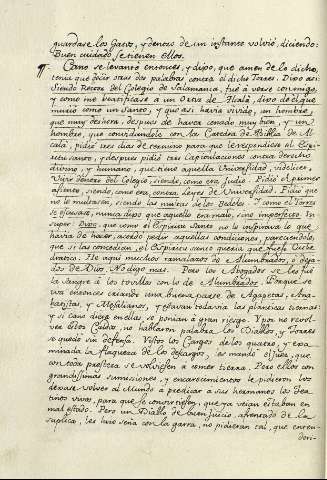 guardase los Gatos, y dentro de un instante volvió, diciendo:
Buen cuidado se tienen ellos.
Cano se levantó entonces, y dijo, que amen de lo dicho,
tenia que decir otras dos palabras contra el dicho Torres. Dijo asi:
Siendo Rector del Colegio de Salamanca, fué á verse conmigo,
y como me ratificase a un Dean de Alcalá, dijo de él, que
murió como un Santo, y que asi havia vivido, un hombre,
que muy de hora, despues de haver cenado muy bien, y un
hombre, que convidandole con la Catedra de Biblia de Al-
calá, pidió tres dias de termino para que le respondiese el Espi-
ritu santo, y despues pidió tres Capitulaciones contra derecho
divino, y humano, que tiene aquella Universidad, videlicet,
Que siendo del Colegio, siendo, como era Judio. Pidió el primer
asiento, siendo, como era, contra Leyes de Universidad. Pidió que
no le multasen, siendo las multas de los Bedeles. Y como el Torres
se escusara, nunca dijo que aquello era malo, sino imperfecto. In-
super: Dios, que como el Espiritu Santo no le inspirava lo que
havia de hacer, acordó pedir aquellas condiciones, pareciendole,
que si las concedian, el Espiritu santo queria que fuese Cate-
dratico. He aqui muchos ramalazos de Alumbrados, ó deja-
dos de Dios. No digo mas. Pero los Abogados se les fué
la sangre á los tovillos con lo de Alumbrados. Porque se
iva entonces criando una buena parte de Agapetas, Ana-
baptistas, y Mesalianos, y estavan todavia las plantas tiernas
y si caso diera en ellas, se ponian á gran riesgo. Y por no revol-
ver estos Caldos, no hablaron palabra los Diablos, y Torres
se quedó sin defensa. Vistos los Cargos de los quatro, y exa-
minada la flaqueza de los descargos, les mandó el Juez, que
con toda presteza se bolviesen a comer tierra. Pero ellos con
grandisimas sumisiones, y encarecimientos le pidieron los
dejase volver al Mundo á predicar a sus hermanos los Tea-
tinos vivos, para que se convirtiesen, que ya veian estaban en
mal estado. Pero un Diablo de buen juicio, afrentado de la
suplica, les hizo seña con la garra, no pidieran tal, que enten-
deri-